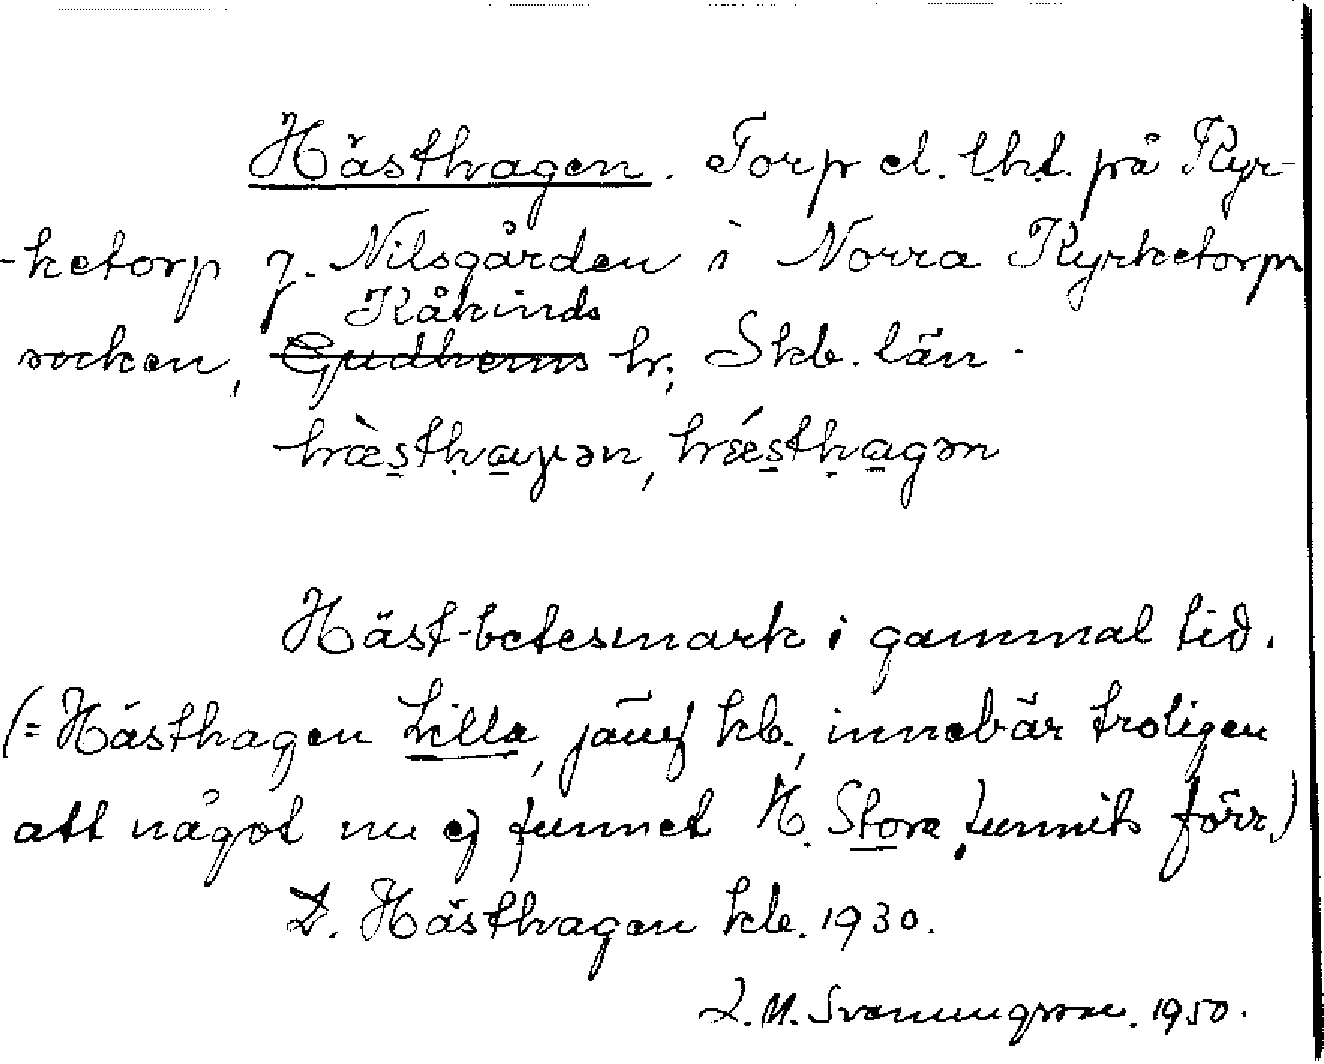 Hästhagen. Torp el. lht. på Kyr-
-ketorp 7. Nilsgården i Norra Kyrketorp
Kåkinds
socken, Gudhems hr; Skb. län.
hæ̀sthaγən, hǽsthagən
Häst-betesmark i gammal tid.
(= Hästhagen Lilla, jämf kb., innebär troligen
att något nu ej funnet H. Stora funnits förr.)
L. Hästhagen kb. 1930.